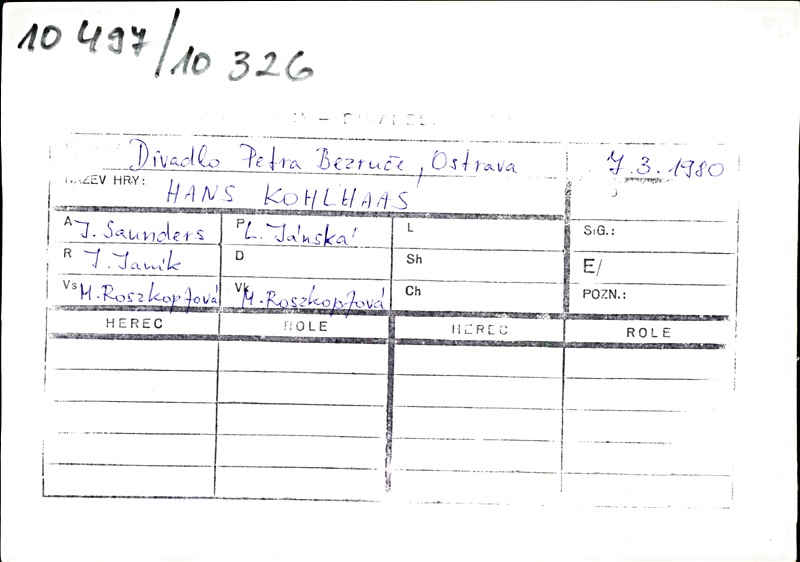 10 497/10 326
Divadlo Petra Bezruče, Ostrava
7.3.1980
NÁZEV HRY:
HANS KOHLHAAS
A J. Saunders P L. Jánská L SIG.:
R J. Janík D Sh E/
Vs M. Roszkopfová Vk M. Roszkopfová Ch POZN.:
HEREC ROLE HEREC ROLE